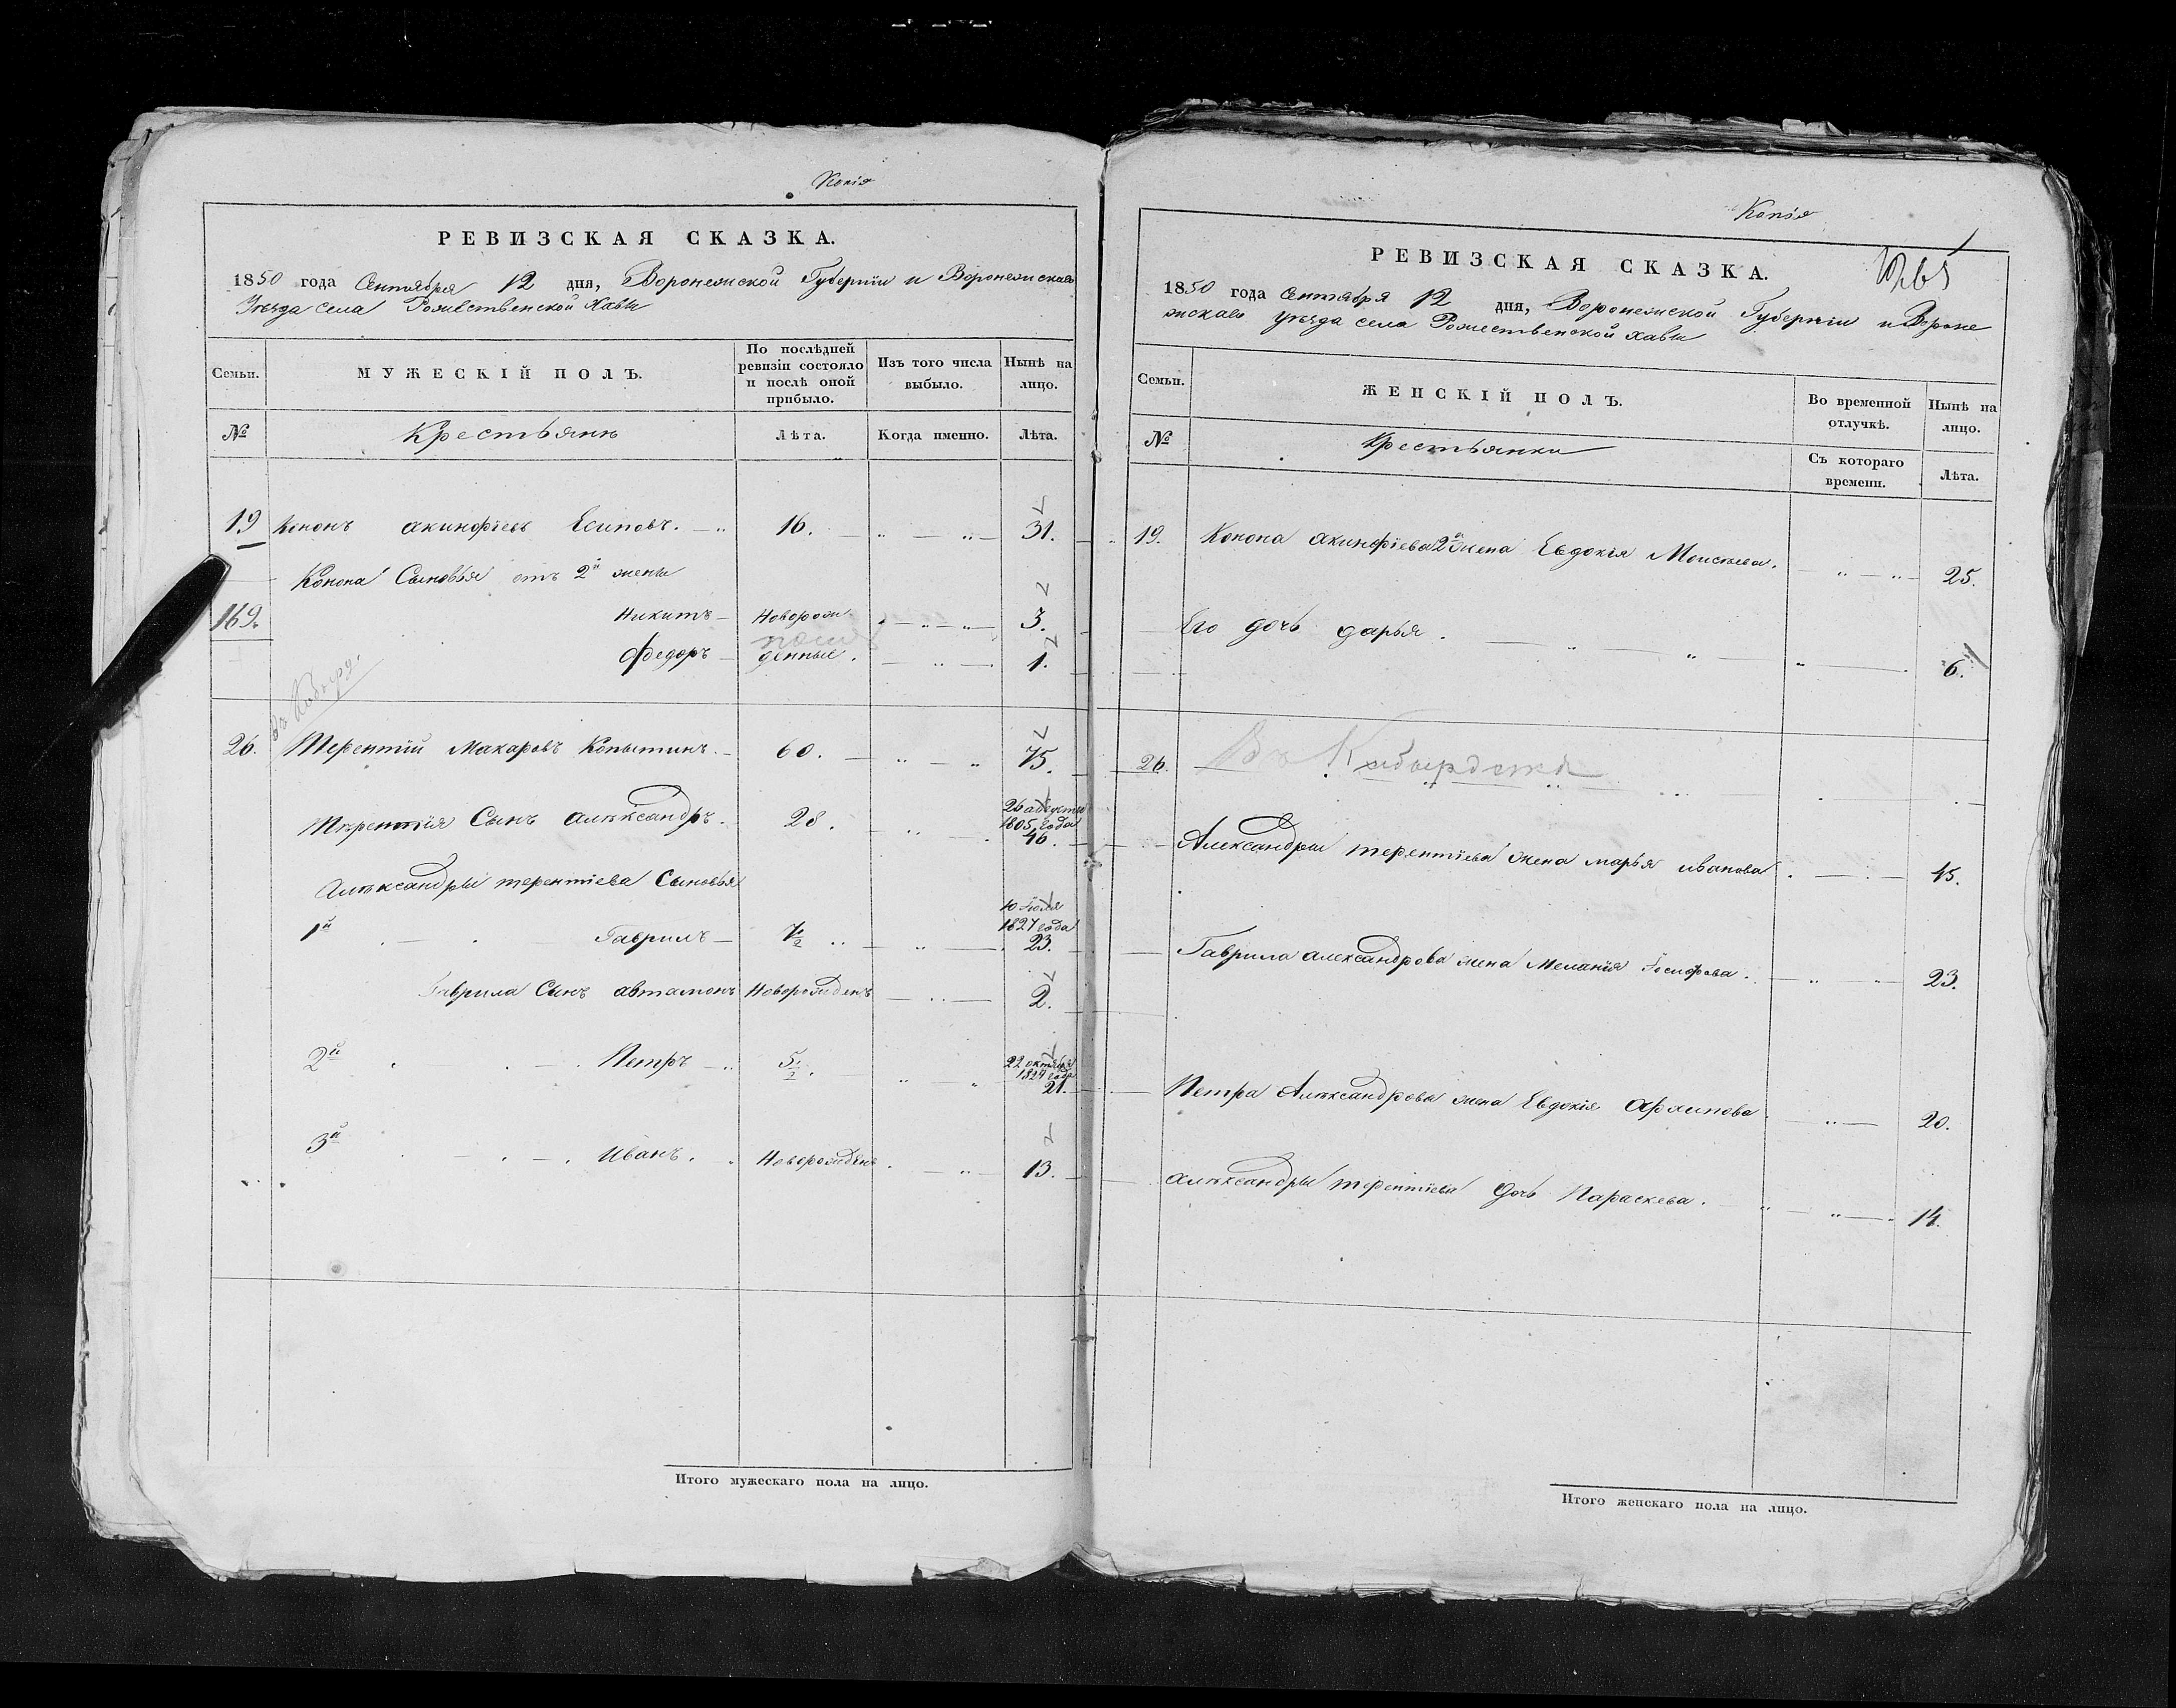 Копія
РЕВИЗСКАЯ СКАЗКА.
1850 года Сентября 12 дня, Воронежской Губерніи и Воронежскаго
Уѣзда села Рожественской Хавы
Семьи.
МУЖЕСКІЙ ПОЛЪ.
По послѣдней ревизіи состояло и послѣ оной прибыло.
Изъ того числа выбыло.
Нынѣ на лицо.
№ Крестьяне Лѣта. Когда именно. Лѣта.
19 Кононъ Акинфіевъ Есиповъ. 16. 31.
Конона Сыновья отъ 2й жены
169. Никитъ Новорож- 3.
Федоръ денные. 1.
26. Терентій Макаровъ Копытинъ. 60. 75.
Терентія Сынъ Александръ. 28. 26 августа 1805 года 46.
Александры терентіева Сыновья
1й Гаврилъ 7½ 10 1827 года 23.
Гаврила Сынъ автамонъ Новорожденъ 2.
2й Петръ 5½. 22 октября 1829 года 21.
3й Иванъ. Новорожденъ 13.
Итого мужескаго пола на лицо.
Копія
РЕВИЗСКАЯ СКАЗКА.
1850 года Сентября 12 дня, Воронежской Губерніи и Вороне
жскаго уѣзда села Рожественской хавы
Семьи.
ЖЕНСКІЙ ПОЛЪ.
Во временной отлучкѣ.
Нынѣ на лицо.
№ Крестьянки Съ котораго времени. Лѣта.
19. Конона акинфіева 2я жена Евдокія Моисѣева. 25.
Его дочь дарья. 6.
26.
Александры терентіева жена марья иванова 45.
Гаврила александрова жена Меланія Іосифова. 23.
Петра Александрова жена Евдокія Архипова 20.
александры терентіева дочь Параскева. 14.
Итого женскаго пола на лицо.